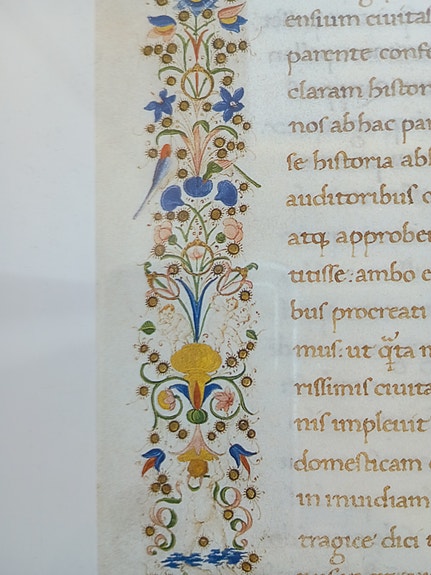 ensium civitas
parente confe
claram histor
nos ab hac par
se historia abh
auditoribus c
atq; approber
titisse: ambo e
bus procreati
mus: ut q̃ta m
rissimis civita
nis implevit
domesticam c
in invidiam
tragice dici